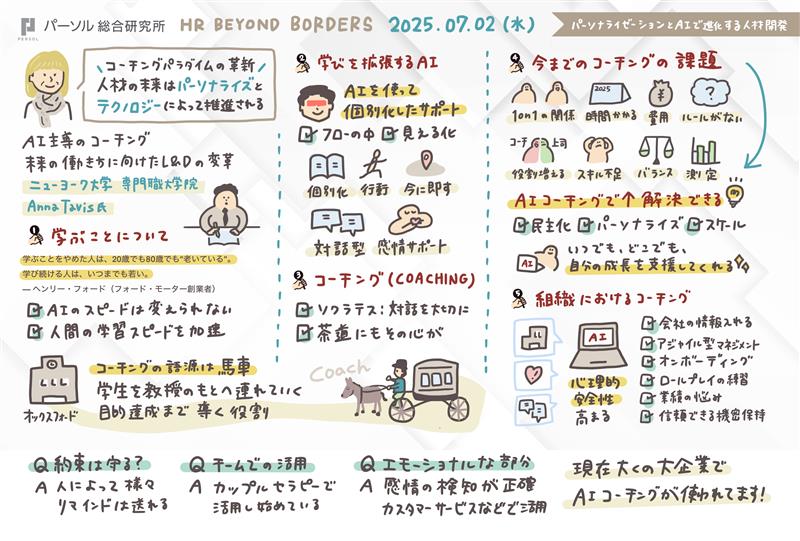 パーソル 総合研究所
PERSOL
HR BEYOND BORDERS
2025.07.02 (水)
パーソナライゼーションとAIで進化する人材開発
コーチングパラダイムの革新
人材の未来はパーソナライズと
テクノロジーによって推進される
AI主導のコーチング
未来の働き方に向けたL&Dの変革
ニューヨーク大学 専門職大学院
Anna Tavis氏
1 学ぶことについて
学ぶことをやめた人は、20歳でも80歳でも“老いている”。
学び続ける人は、いつまでも若い。
— ヘンリー・フォード（フォード・モーター創業者）
AIのスピードは変えられない
人間の学習スピードを加速
コーチングの語源は馬車
学生を教授のもとへ連れていく
目的達成まで導く役割
オックスフォード
Coach
2 学びを拡張するAI
AIを使って
個別化したサポート
フローの中
見える化
個別化
行動
今に即す
対話型
感情サポート
3 コーチング(COACHING)
ソクラテス:対話を大切に
茶道にもその心が
4 今までのコーチングの課題
2025
¥
?
1on1の関係
時間かかる
費用
ルールがない
コーチ
上司
役割増える
スキル不足
バランス
測定
AIコーチングで↑解決できる
民主化
パーソナライズ
スケール
AI
いつでも、どこでも、
自分の成長を支援してくれる
5 組織におけるコーチング
AI
心理的
安全性
高まる
会社の情報入れる
アジャイル型マネジメント
オンボーディング
ロールプレイの練習
業績の悩み
信頼できる機密保持
Q 約束は守る?
A 人によって様々
リマインドは送れる
Q チームでの活用
A カップルセラピーで
活用し始めている
Q エモーショナルな部分
A 感情の検知が正確
カスタマーサービスなどで活用
現在多くの大企業で
AIコーチングが使われてます!